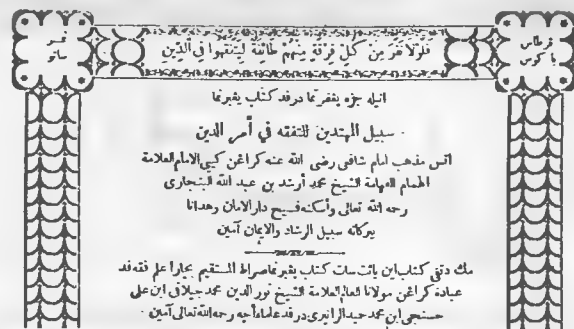 قرطاس
باكوس
فلولا نفر من كل فرقة منهم طائفة ليتفقهوا في الدين
نمبر
ساتو
انيله جزء يغفرتما درفد كتاب يغبرنما
سبيل المهتدين للتفقه في أمر الدين
اتس مذهب امام شافعي رضى الله عنه كراغن كيي الامام العلامة
الهمام الفهامة الشيخ محمد أرشد بن عبد الله البنجاري
رحمه الله تعالى وأسكنه فسيح دار الامان وهدانا
ببركاته سبيل الرشاد والايمان آمين
مك دتفي كتاب اين يائت سات كتاب يغبرنما صراط المستقيم بچارا علم فقه فد
عبادة كراغن مولانا العالم العلامة الشيخ نور الدين محمد جيلاني ابن علي
حسنجي ابن محمد حميد الرانيري درفد علماء اچه رحمه الله تعالى آمين